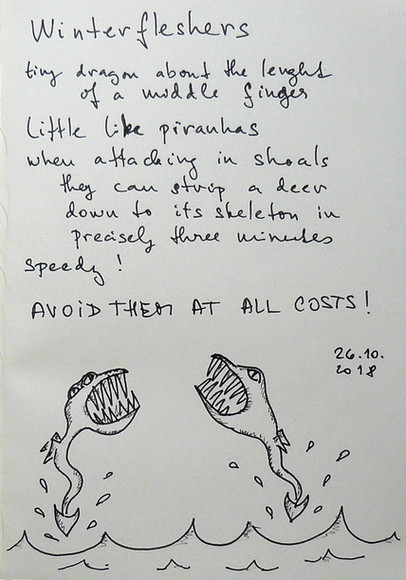 Winterfleshers
tiny dragon about the lenght
of a middle finger
little like piranhas
when attacking in shoals
they can strip a deer
down to its skeleton in
precisely three minutes
speedy!
AVOID THEM AT ALL COSTS!
26.10.
2018